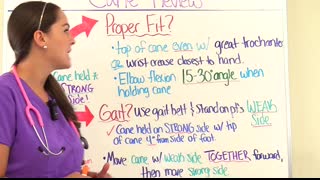 Cane Review
Proper Fit?
• top of cane even w/ great trochanter
& wrist crease closest to hand.
• Elbow flexion 15-30° angle when
holding cane
Cane held
STRONG
Side!
Gait? Use gait belt & stand on pt's WEAK
Side.
✓ Cane held on STRONG side w/ tip
of cane 4" from side of foot.
• Move cane w/ weak side TOGETHER forward,
then move strong side.